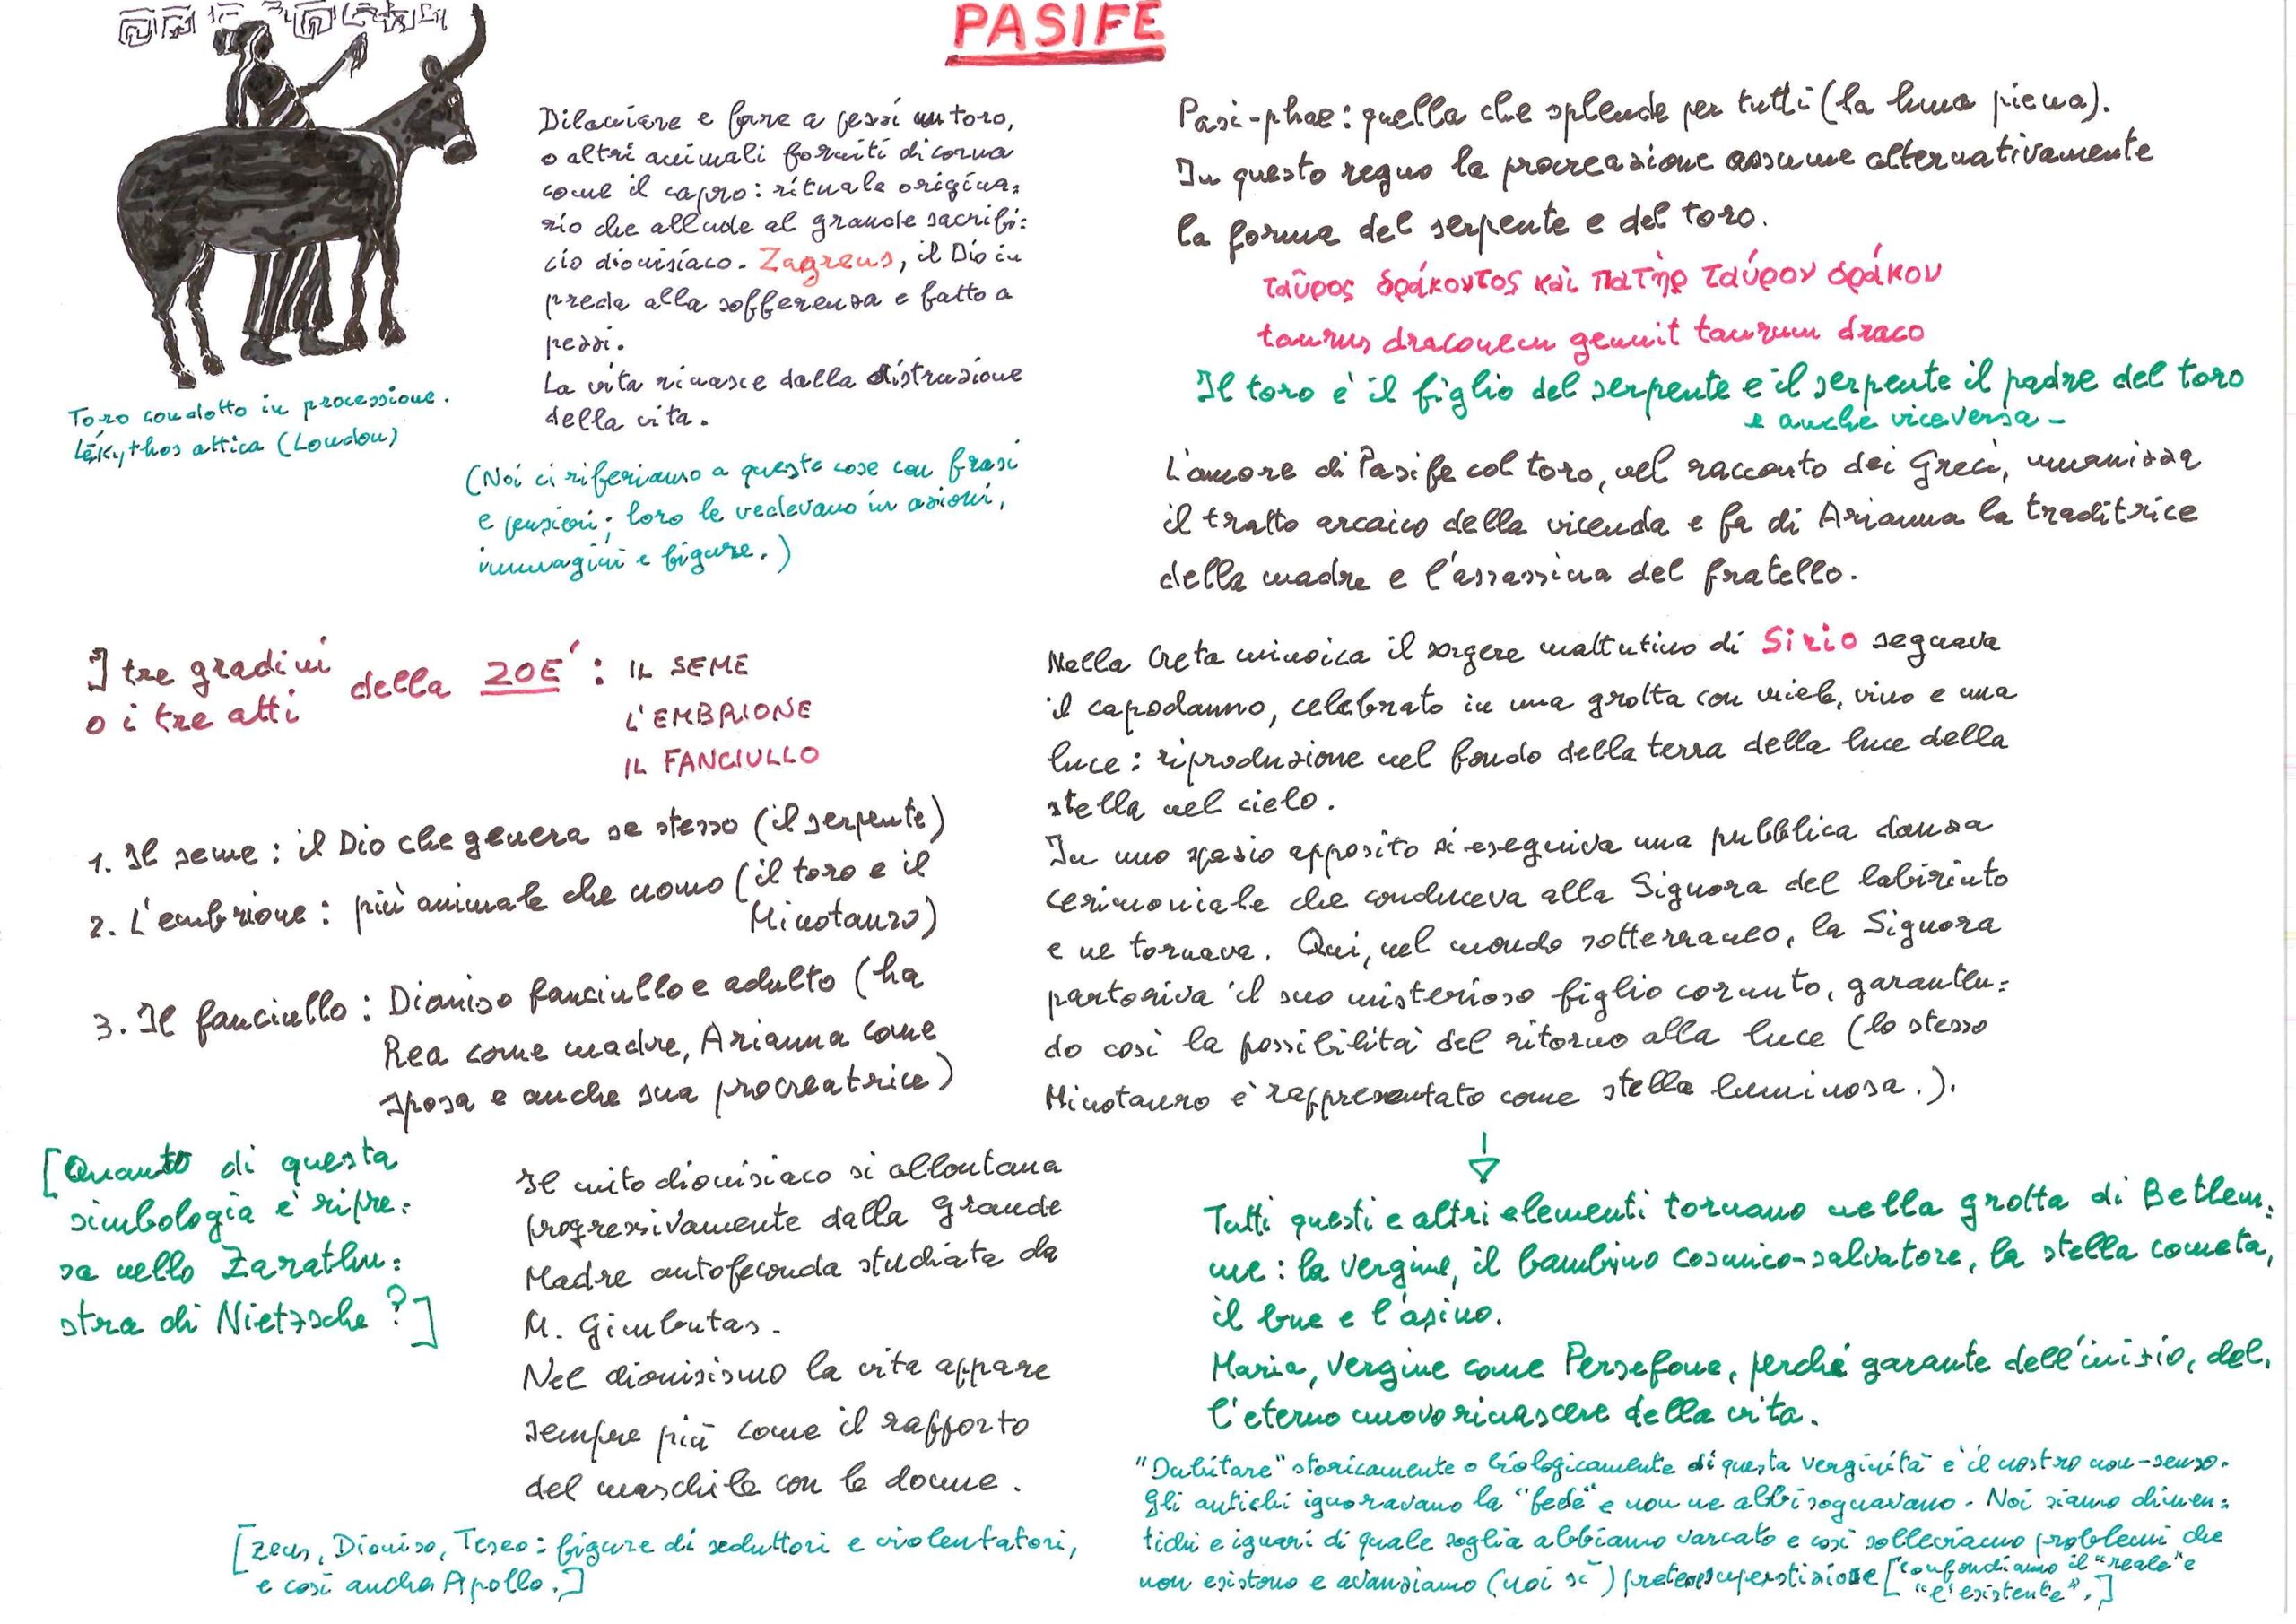 PASIFE
Dilaniare e fare a pezzi un toro,
o altri animali forniti di corna
come il capro: rituale origina=
rio che allude al grande sacrifi=
cio dionisiaco. Zagreus, il Dio in
preda alla sofferenza e fatto a
pezzi.
La vita rinasce dalla distruzione
della vita.
Toro condotto in processione.
Lékythos attica (London)
(Noi ci riferiamo a queste cose con frasi
e pensieri; loro le vedevano in azioni,
immagini e figure.)
Pasi-phae: quella che splende per tutti (la luna piena).
In questo regno la procreazione assume alternativamente
la forma del serpente e del toro.
ταῦρος δράκοντος καὶ πατὴρ ταύρου δράκον
taurus draconem genuit taurum draco
Il toro è il figlio del serpente e il serpente il padre del toro
e anche viceversa -
L'amore di Pasife col toro, nel racconto dei Greci, umanizza
il tratto arcaico della vicenda e fa di Arianna la traditrice
della madre e l'assassina del fratello.
I tre gradini
o i tre atti
della ZOÉ: IL SEME
L'EMBRIONE
IL FANCIULLO
1. Il seme: il Dio che genera se stesso (il serpente)
2. L'embrione: più animale che uomo (il toro e il
Minotauro)
3. Il fanciullo: Dioniso fanciullo e adulto (ha
Rea come madre, Arianna come
sposa e anche sua procreatrice)
Nella Creta minoica il sorgere mattutino di Sirio segnava
il capodanno, celebrato in una grotta con miele, vino e una
luce: riproduzione nel fondo della terra della luce della
stella nel cielo.
In uno spazio apposito si eseguiva una pubblica danza
cerimoniale che conduceva alla Signora del labirinto
e ne tornava. Qui, nel mondo sotterraneo, la Signora
partoriva il suo misterioso figlio cornuto, garanten=
do così la possibilità del ritorno alla luce (lo stesso
Minotauro è rappresentato come stella luminosa.).
[Quanto di questa
simbologia è ripre=
sa nello Zarathu=
stra di Nietzsche?]
Il mito dionisiaco si allontana
progressivamente dalla Grande
Madre autofeconda studiata da
M. Gimbutas.
Nel dionisismo la vita appare
sempre più come il rapporto
del maschile con le donne.
[Zeus, Dioniso, Teseo: figure di seduttori e violentatori,
e così anche Apollo.]
Tutti questi e altri elementi tornano nella grotta di Betlem=
me: la vergine, il bambino cosmico-salvatore, la stella cometa,
il bue e l'asino.
Maria, vergine come Persefone, perché garante dell'inizio, del=
l'eterno nuovo rinascere della vita.
"Dubitare" storicamente o biologicamente di questa verginità è il nostro non-senso.
Gli antichi ignoravano la "fede" e non ne abbisognavano. Noi siamo dimen=
tichi e ignari di quale soglia abbiamo varcato e così solleviamo problemi che
non esistono e avanziamo (noi sì) pretese superstiziose [confondiamo il "reale" e
"l'esistente".]